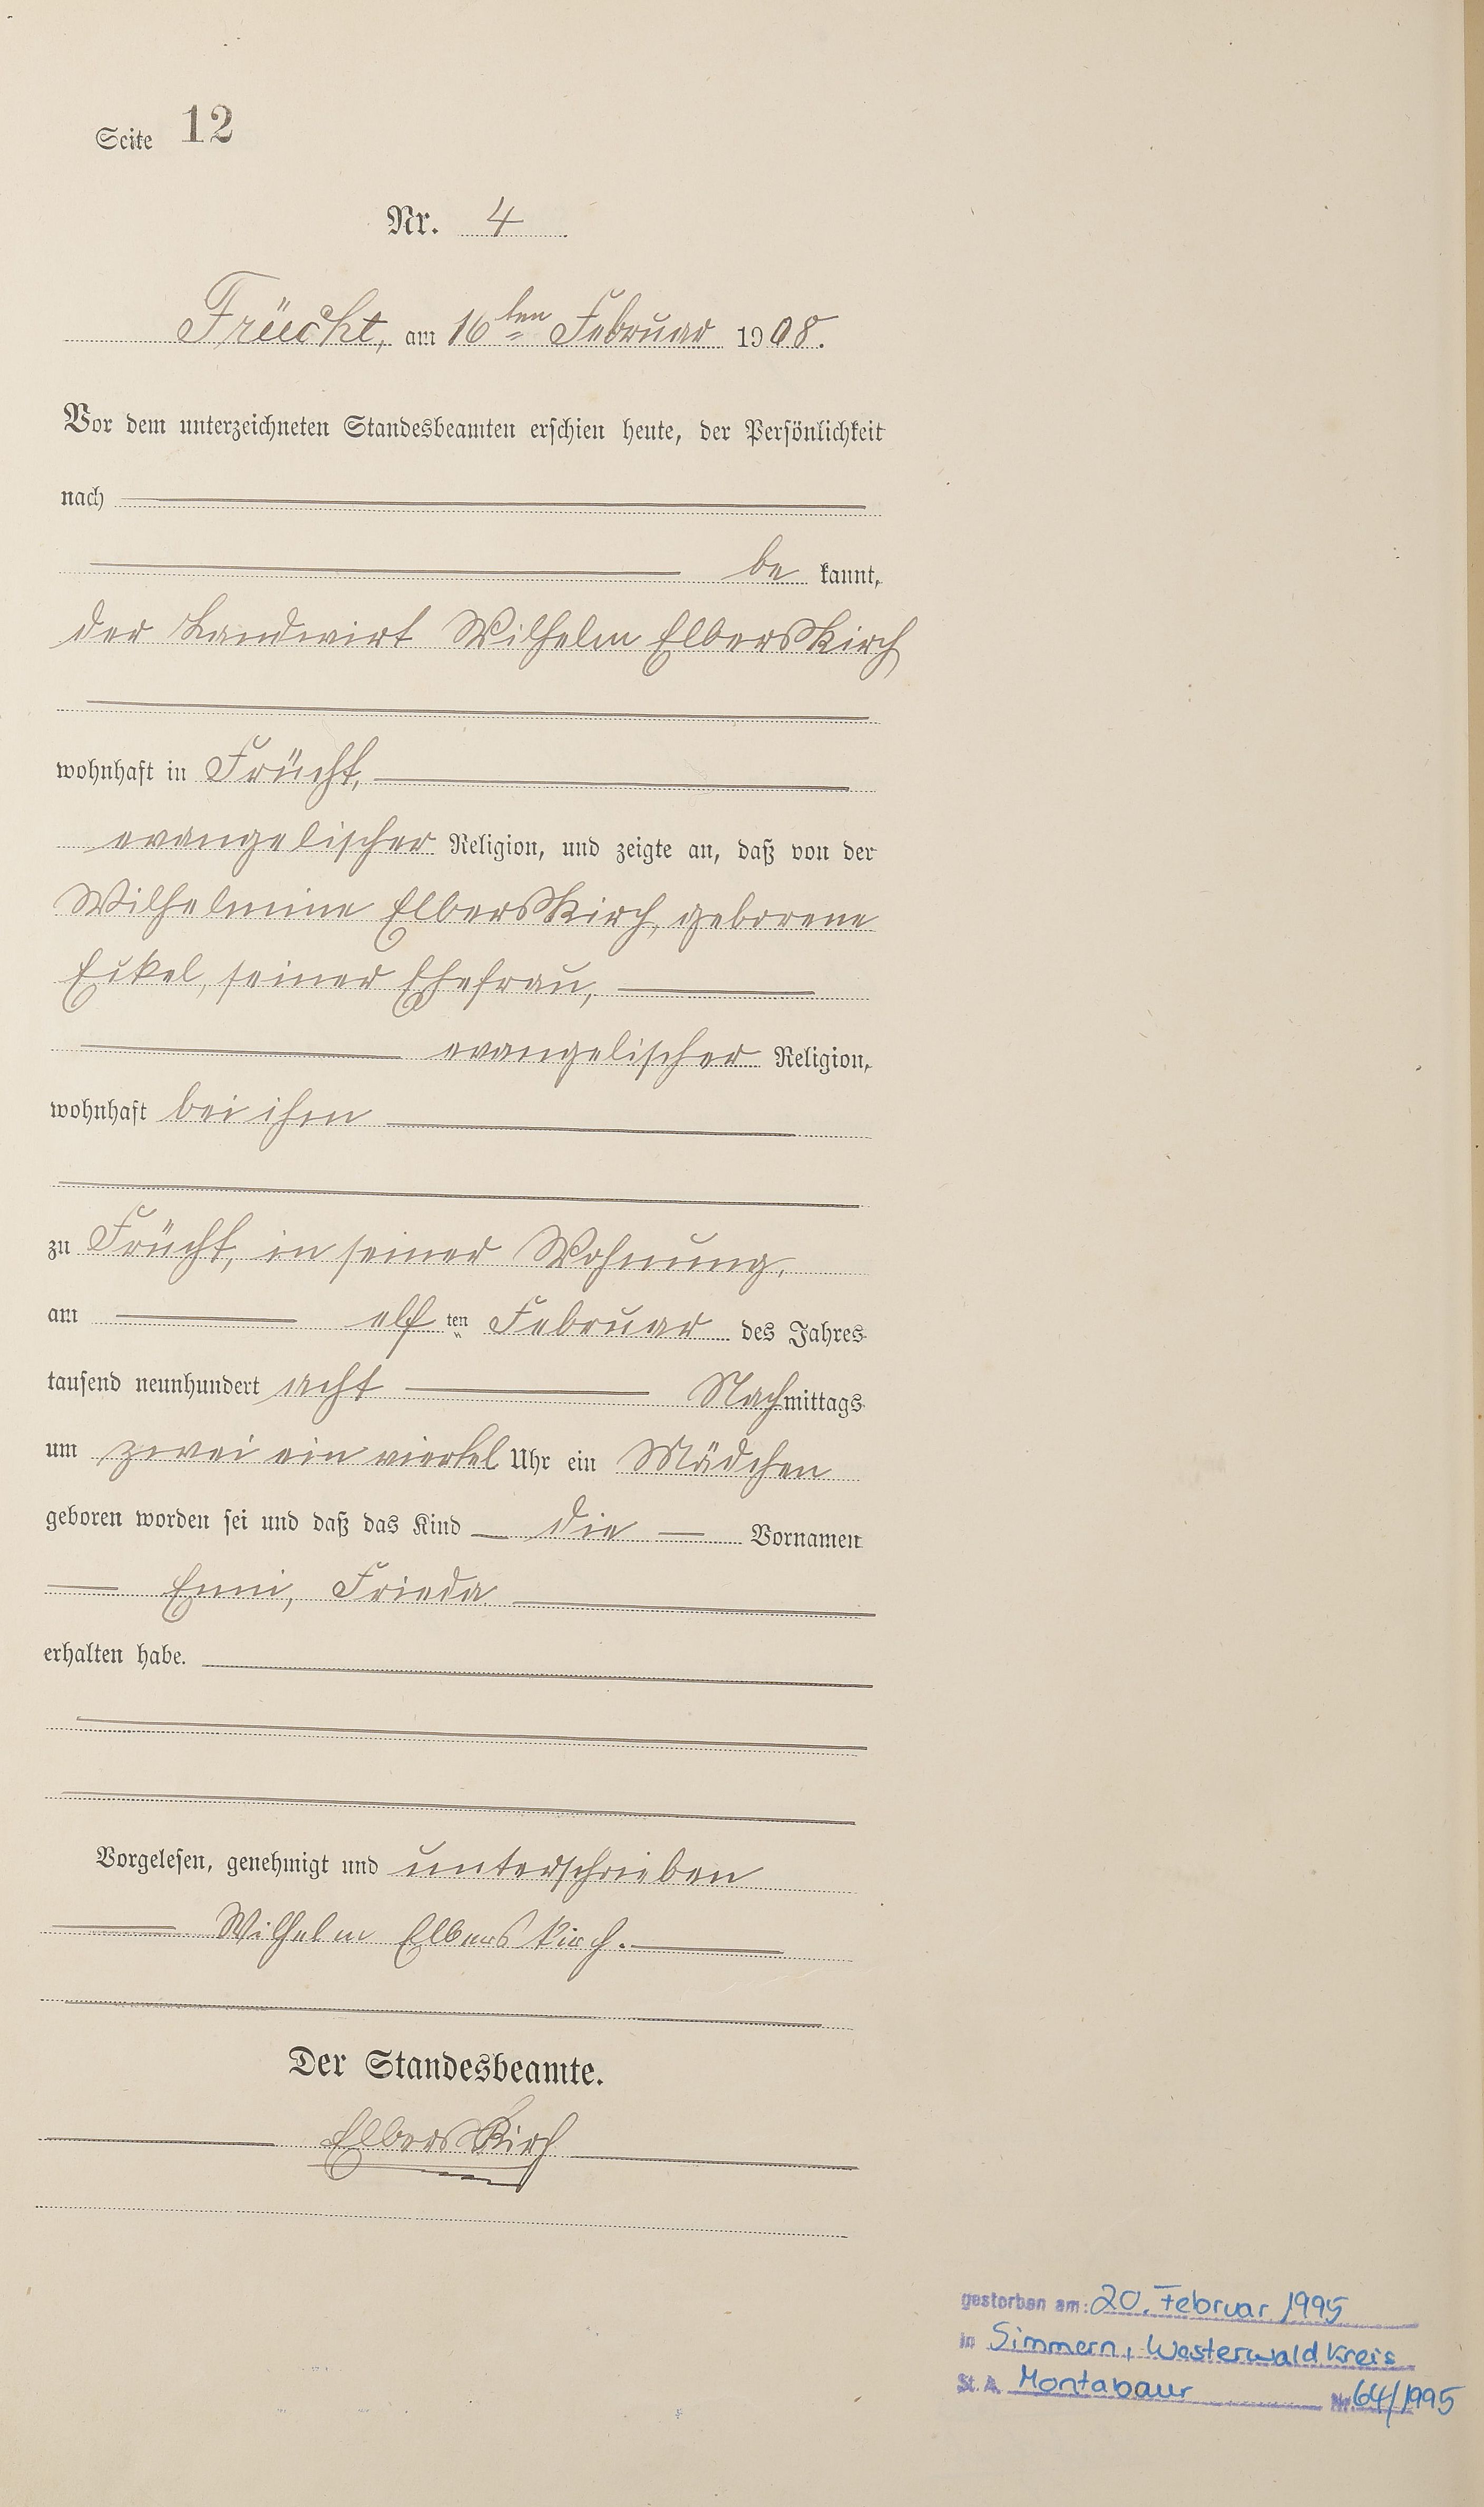 Seite 12
Nr. 4
Frücht, am 16ten Februar 1908.
Vor dem unterzeichneten Standesbeamten erschien heute, der Persönlichkeit
nach
be kannt,
der Landwirt Wilhelm Elberskirch
wohnhaft in Frücht,
evangelischer Religion, und zeigte an, daß von der
Wilhelmine Elberskirch, geborene
Eikel, seiner Ehefrau,
evangelischer Religion,
wohnhaft bei ihm
zu Frücht, in seiner Wohnung,
am elf ten Februar des Jahres
tausend neunhundert acht Nachmittags
um zwei ein viertel Uhr ein Mädchen
geboren worden sei und daß das Kind die Vornamen
Emmi, Frieda
erhalten habe.
Vorgelesen, genehmigt und unterschrieben
Wilhelm Elberskirch.
Der Standesbeamte.
Elberskirch
gestorben am: 20. Februar 1995
in Simmern, Westerwaldkreis
St. A. Montabaur Nr. 64/1995